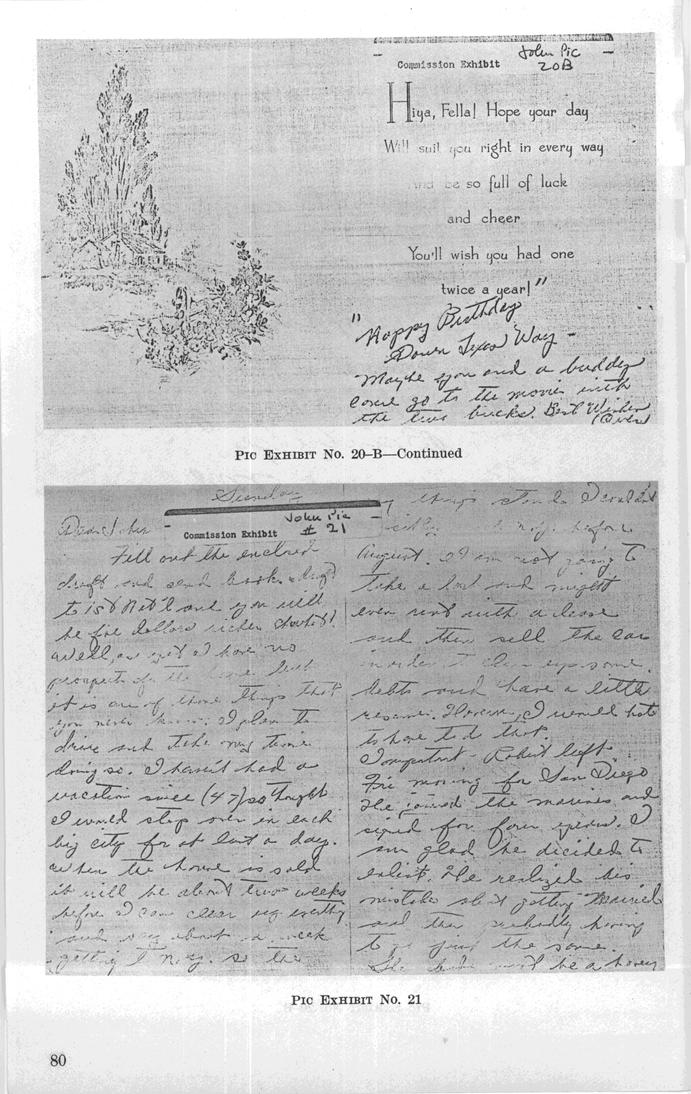 John Pic
Commission Exhibit 20B
Hiya, Fella! Hope your day
Will suit you right in every way
And be so full of luck
and cheer
You'll wish you had one
twice a year!"
"Happy Birthday
Down Texas Way -
Maybe you and a buddy
could go to the movie with
the two bucks. Best Wishes
(Over)
PIC EXHIBIT NO. 20-B—Continued
Sunday
John Pic
Commission Exhibit # 21
Dear John
Fill out the enclosed
draft and send book &
to 1st Nat'l and you will
be five dollars richer
well, as yet I have no
prospects for the but
it is one of those things that
you never know. I plan to
drive and take my time
doing so. I haven't had a
vacation since (47) so thought
I would stop over in each
big city for at least a day.
When the house is sold
it will be about two weeks
before I can clear up
and about a week
getting to N.Y. so the
way things stand I couldn't
be in N.Y. before
August. I am not going to
take a loss and might
even rent with a lease
and then sell the car
in order to clear up some
debts and have a little
reserve. However, I would hate
to have to do that.
Important - Robert left
Fri morning for San Diego
He joined the marines and
signed for four years. I
am glad he decided to
enlist. He realized his
mistake about getting married
and then probably having
to go just the same.
She
PIC EXHIBIT NO. 21
80